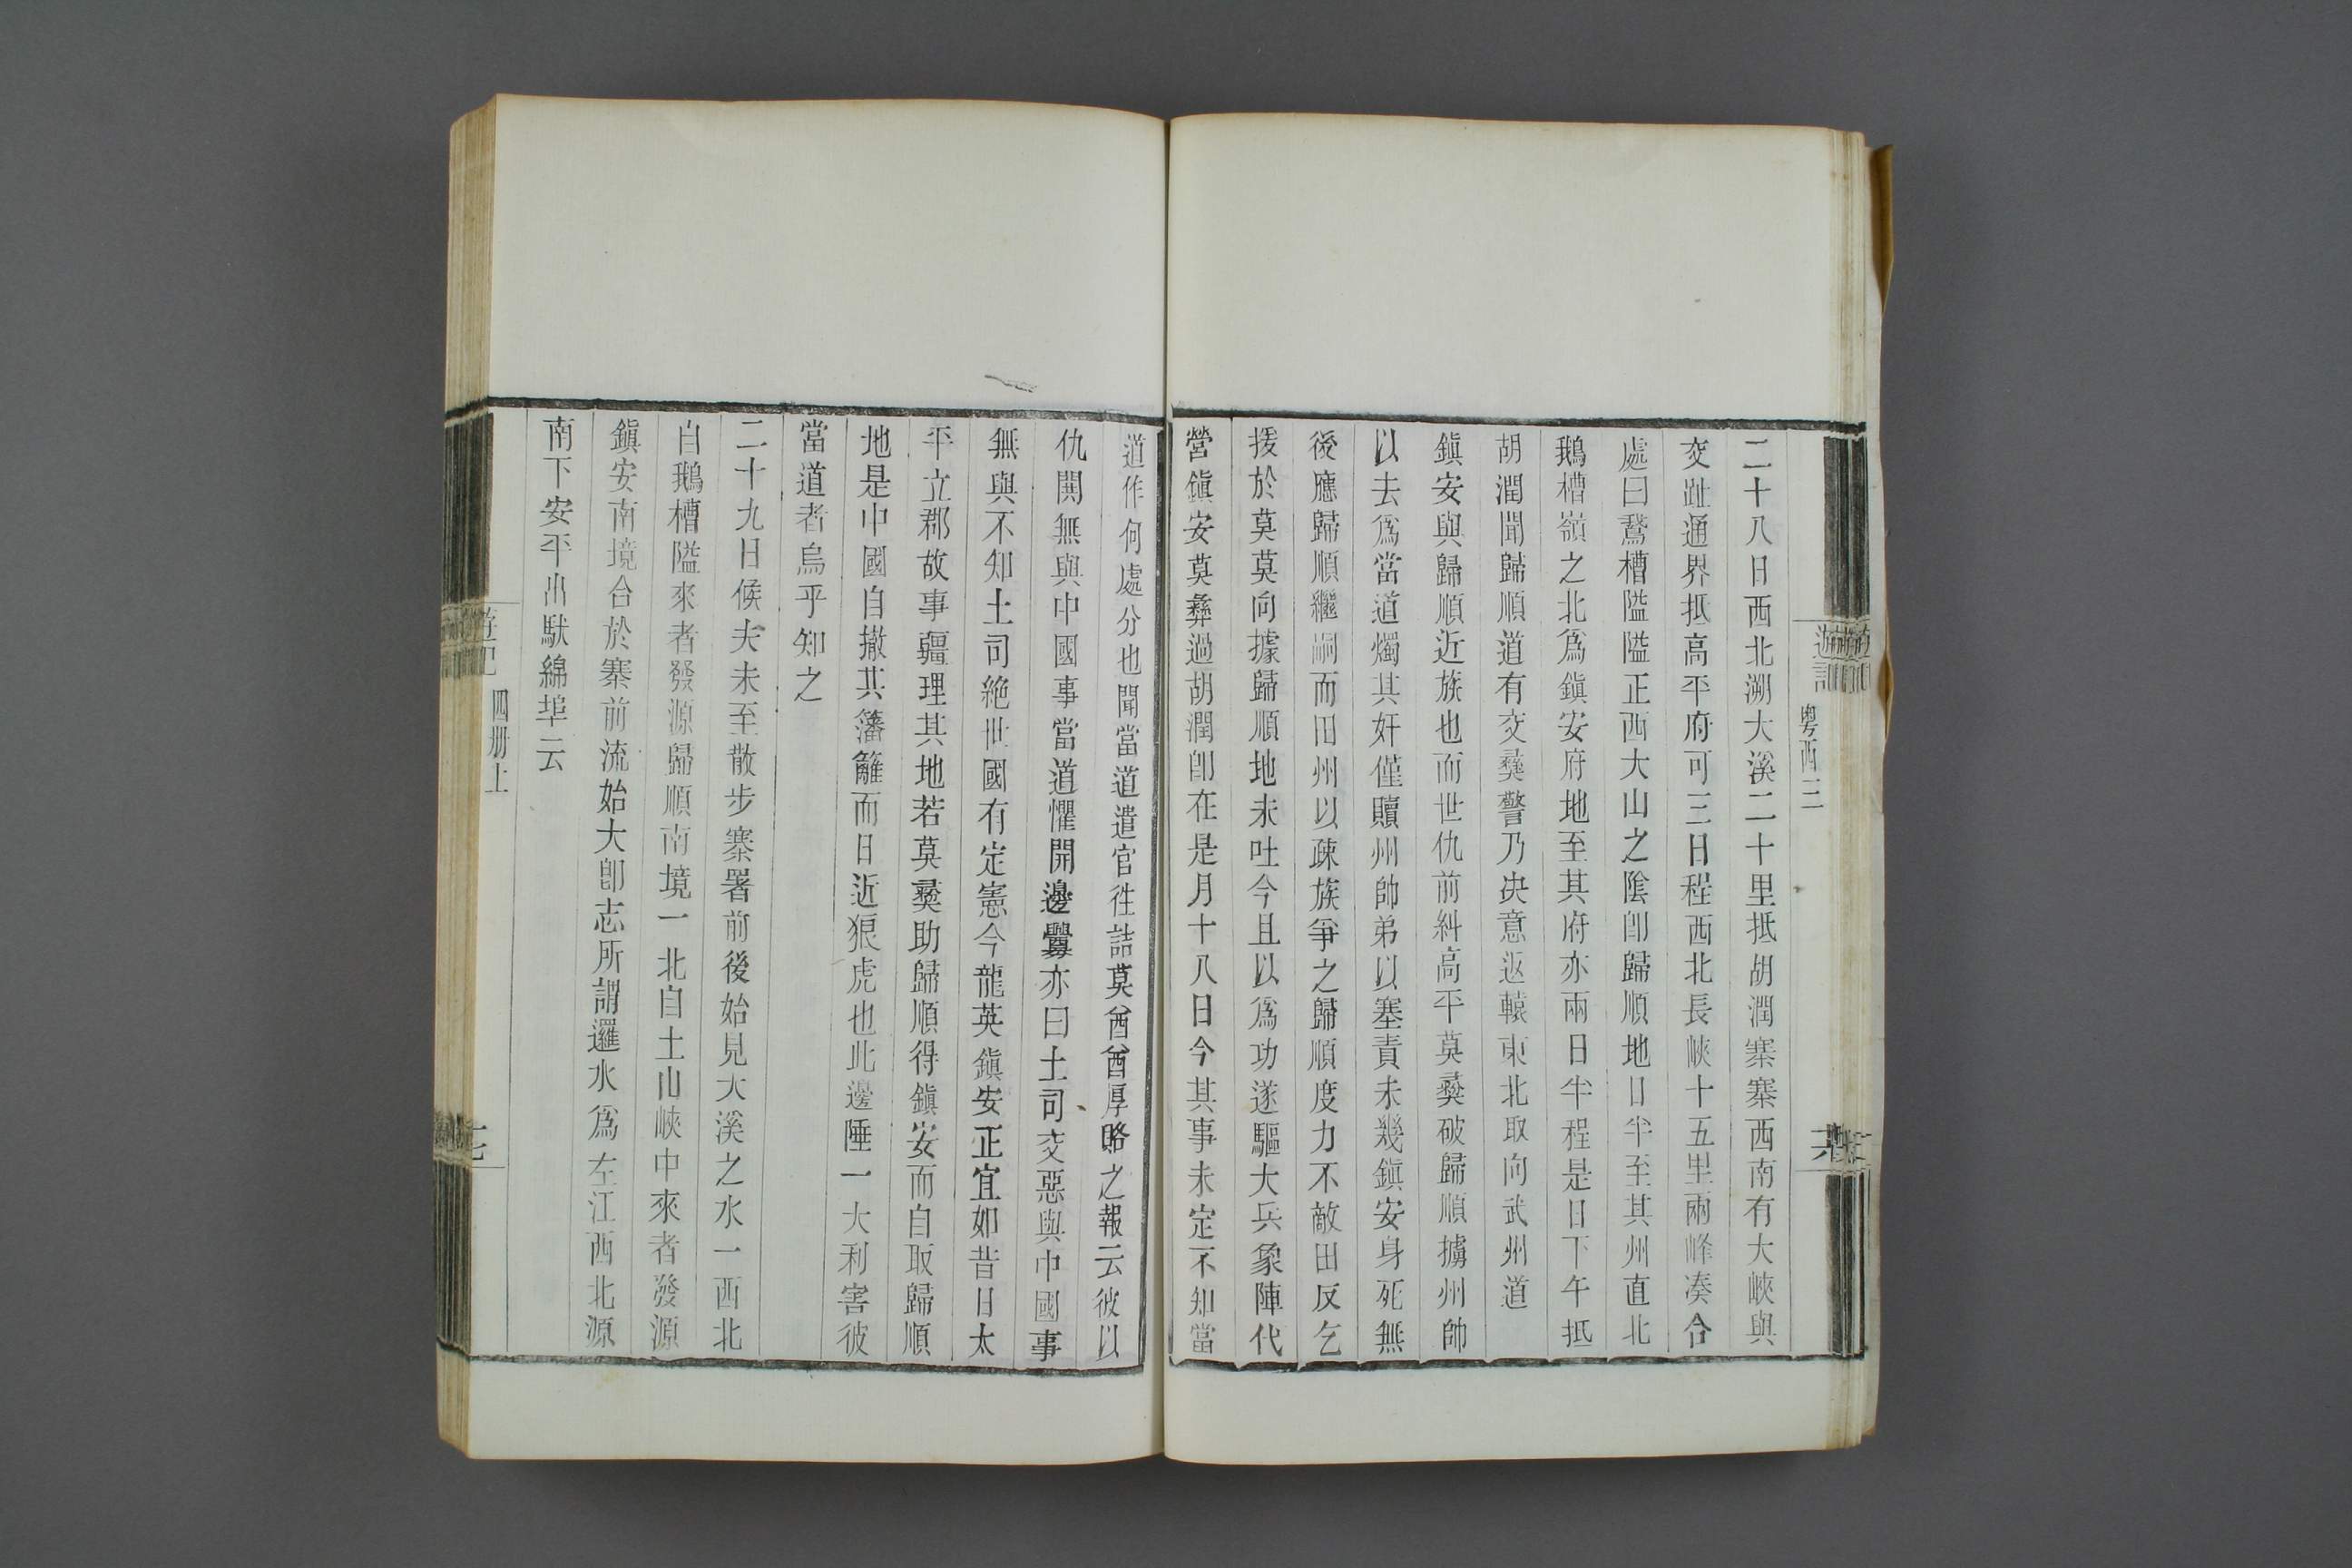 遊記
粵西三
二十八日西北溯大溪二十里抵胡潤寨寨西南有大峽與
交趾通界抵高平府可三日程西北長峽十五里兩峰湊合
處曰鵞槽隘隘正西大山之陰卽歸順地日半至其州直北
鵝槽嶺之北爲鎭安府地至其府亦兩日半程是日下午抵
胡潤聞歸順道有交彞警乃决意返轅東北取向武州道
鎭安與歸順近族也而世仇前糾高平莫彞破歸順擄州帥
以去爲當道燭其奸僅贖州帥弟以塞責未幾鎭安身死無
後應歸順繼嗣而田州以疎族爭之歸順度力不敵田反乞
援於莫莫向據歸順地未吐今且以爲功遂驅大兵象陣代
營鎭安莫彞過胡潤卽在是月十八日今其事未定不知當
道作何處分也聞當道遣官往詰莫酋酋厚賂之報云彼以
仇鬨無與中國事當道懼開邊釁亦曰土司交惡與中國事
無與不知土司絶世國有定憲今龍英鎭安正宜如昔日太
平立郡故事疆理其地若莫彞助歸順得鎭安而自取歸順
地是中國自撤其籓籬而日近狼虎也此邊陲一大利害彼
當道者烏乎知之
二十九日候夫未至散步寨署前後始見大溪之水一西北
自鵝槽隘來者發源歸順南境一北自土山峽中來者發源
鎭安南境合於寨前流始大卽志所謂邏水爲左江西北源
南下安平出馱綿埠云
遊記
四册上
七